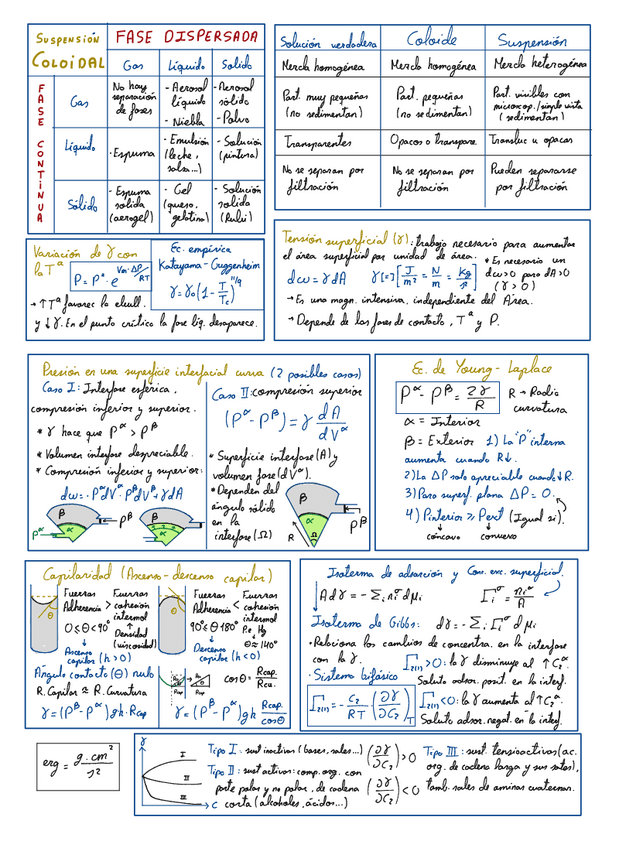 SUSPENSIÓN COLOIDAL
FASE DISPERSADA
Gas Líquido Sólido
FASE CONTINUA
Gas
No hay separación de fases
- Aerosol líquido
- Niebla
- Aerosol sólido
- Polvo
Líquido
- Espuma
- Emulsión (leche, salsa...)
- Solución (pintura)
Sólido
- Espuma solida (aerogel)
- Gel (queso, gelatina)
- Solución solida (Rubí)
Solución verdadera Coloide Suspensión
Mezcla homogénea Mezcla homogénea Mezcla heterogénea
Part. muy pequeñas (no sedimentan)
Part. pequeñas (no sedimentan)
Part. visibles con microscop./simple vista (sedimentan)
Transparentes Opacos o transpare. Transluc u opacas
No se separan por filtración
No se separan por filtración
Pueden separarse por filtración
Variación de γ con la Tª
P = P*· e^(Vm·ΔP/RT)
Ec. empírica
Katayama-Guggenheim
γ = γ₀(1 - T/Tc)^(11/9)
→ ↑Tª favorece la ebull.
y ↓γ. En el punto crítico la fase liq. desaparece.
Tensión superficial (γ): trabajo necesario para aumentar
el área superficial por unidad de área.
* Es necesario un dω>0 para dA>0 (γ>0)
dω = γdA γ[=][J/m² = N/m = Kg/s²]
→ Es una magn. intensiva, independiente del Área.
→ Depende de las fases de contacto, Tª y P.
Presión en una superficie interfacial curva (2 posibles casos)
Caso I: Interfase esférica,
compresión inferior y superior.
* γ hace que Pᵅ > Pᵝ
* Volumen interfase despreciable.
* Compresión inferior y superior:
dω = -PᵅdVᵅ - PᵝdVᵝ + γdA
β α Pᵅ Pᵝ
β α
Caso II: compresión superior
(Pᵅ - Pᵝ) = γ dA/dVᵅ
* Superficie interfase (A) y
volumen fase (dVᵅ).
* Dependen del
ángulo sólido
en la
interfase (Ω)
β α R Ω Pᵝ
Ec. de Young-Laplace
Pᵅ - Pᵝ = 2γ/R
R → Radio curvatura
α = Interior
β = Exterior 1) La "P" interna
aumenta cuando R↓.
2) La ΔP solo apreciable cuando ↓R.
3) Para superf. plana ΔP = 0.
4) Pinterior ≥ Pext (Igual si).
cóncavo convexo
Capilaridad (Ascenso-descenso capilar)
θ
Fuerzas Adherencia > Fuerzas cohesión intermol
0≤θ<90°
↑ Densidad (viscosidad)
Ascenso capilar (h>0)
θ
Fuerzas Adherencia < Fuerzas cohesión intermol
P.e Hg
90°≤θ≤180° θ≈140°
Descenso capilar (h<0)
Ángulo contacto (θ) nulo
R. Capilar ≈ R. Curvatura
γ = (Pᵝ - Pᵅ)gh·Rcap
cosθ = Rcap./Rcu.
γ = (Pᵝ - Pᵅ)gh Rcap/cosθ
Isoterma de adsorción y Con. exc. superficial.
Adγ = -Σᵢ nᵢᵟ dμᵢ
Γᵢᵟ = nᵢᵟ/A
Isoterma de Gibbs: dγ = -Σᵢ Γᵢᵟ dμᵢ
· Relaciona los cambios de concentra. en la interfase
con la γ.
Γ₂₍₁₎>0: la γ disminuye al ↑C₂ᵅ
Soluto adsor. posit. en la interf.
· Sistema bifásico
Γ₂₍₁₎ = -C₂/RT (∂γ/∂C₂)T
Γ₂₍₁₎<0: la γ aumenta al ↑C₂ᵅ.
Soluto adsor. negat. en la interf.
erg = g·cm²/s²
γ I II III C
Tipo I: sust inactivas (bases, sales...) (∂γ/∂C₂)>0
Tipo II: sust activas: comp. org. con
parte polar y no polar, de cadena
corta (alcoholes, ácidos...)
(∂γ/∂C₂)<0
Tipo III: sust. tensioactivas (ac.
org. de cadena larga y sus sales),
tamb. sales de aminas cuaternar.